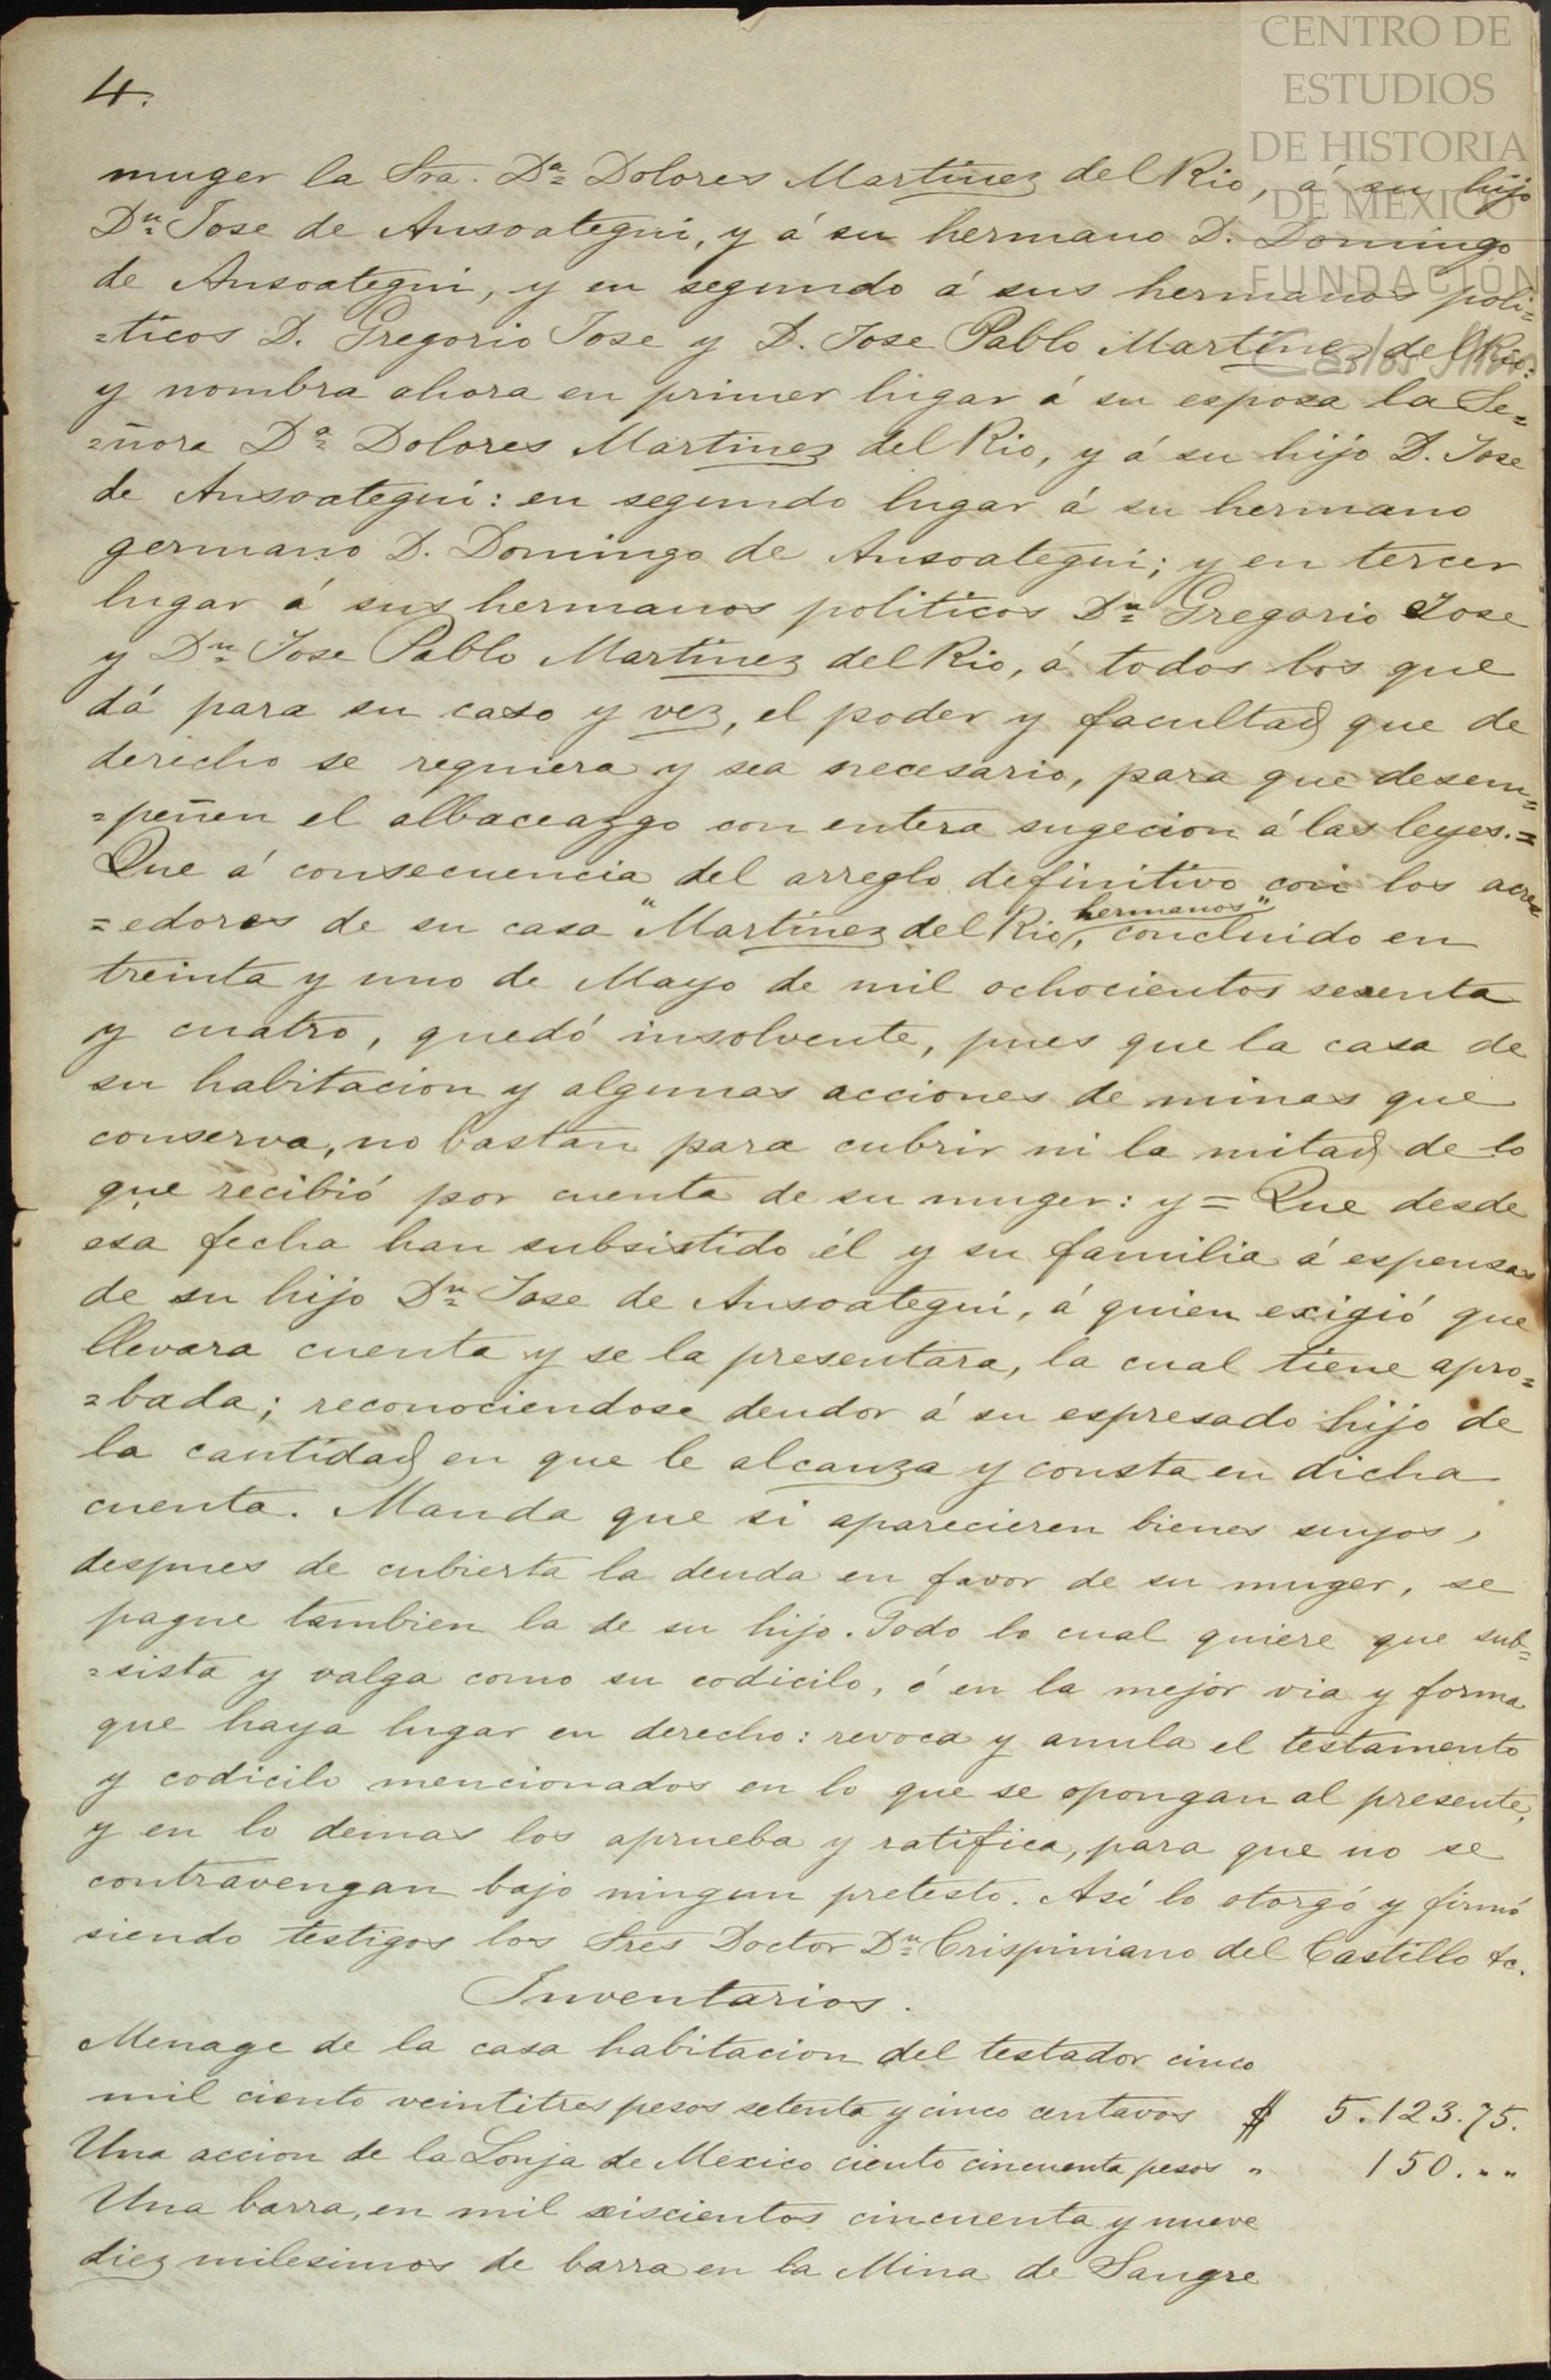 CENTRO DE
ESTUDIOS
DE HISTORIA
DE MEXICO
FUNDACIÓN
4.
muger la Sra. Dª Dolores Martinez del Rio, á su hijo
Dn Jose de Ansoategui, y á su hermano D. Domingo
de Ansoategui, y en segundo á sus hermanos poli=
=ticos D. Gregorio Jose y D. Jose Pablo Martinez del Rio:
y nombra ahora en primer lugar á su esposa la Se=
=ñora Dª Dolores Martinez del Rio, y á su hijo D. Jose
de Ansoategui: en segundo lugar á su hermano
germano D. Domingo de Ansoategui; y en tercer
lugar á sus hermanos politicos Dn Gregorio Jose
y Dn Jose Pablo Martinez del Rio, á todos los que
dá para su caso y vez, el poder y facultad que de
derecho se requiera y sea necesario, para que desem=
=peñen el albaceazgo con entera sugecion á las leyes.=
Que á consecuencia del arreglo definitivo con los acre=
=edores de su casa "Martinez del Rio, hermanos" concluido en
treinta y uno de Mayo de mil ochocientos sesenta
y cuatro, quedó insolvente, pues que la casa de
su habitacion y algunas acciones de minas que
conserva, no bastan para cubrir ni la mitad de lo
que recibió por cuenta de su muger: y = Que desde
esa fecha han subsistido él y su familia á espensas
de su hijo Dn Jose de Ansoategui, á quien exigió que
llevara cuenta y se la presentara, la cual tiene apro=
=bada; reconociendose deudor á su espresado hijo de
la cantidad en que le alcanza y consta en dicha
cuenta. Manda que si aparecieren bienes suyos,
despues de cubierta la deuda en favor de su muger, se
pague tambien la de su hijo. Todo lo cual quiere que sub=
=sista y valga como su codicilo, ó en la mejor via y forma
que haya lugar en derecho: revoca y anula el testamento
y codicilo mencionados en lo que se opongan al presente,
y en lo demas los aprueba y ratifica, para que no se
contravengan bajo ningun pretesto. Asi lo otorgó y firmó
siendo testigos los Sres Doctor Dn Crispiniano del Castillo &c.
Inventarios.
Menage de la casa habitacion del testador cinco
mil ciento veintitres pesos setenta y cinco centavos $ 5.123.75.
Una accion de la Lonja de Mexico ciento cincuenta pesos " 150. " "
Una barra, en mil seiscientos cincuenta y nueve
diez milesimos de barra en la Mina de Sangre